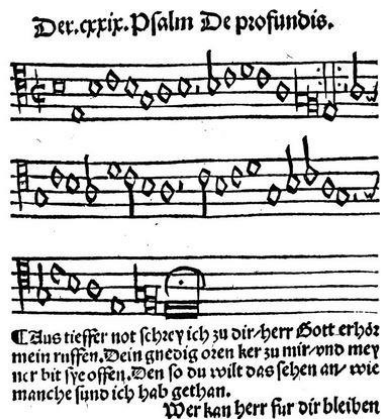 Der.cxxix.Psalm De profundis.
Aus tieffer not schrey ich zu dir/herr Gott erhör
mein ruffen. Dein gnedig oren ker zu mir/vnd mey
ner bit sye offen. Den so du wilt das sehen an/ wie
manche sund ich hab gethan.
Wer kan herr fur dir bleiben